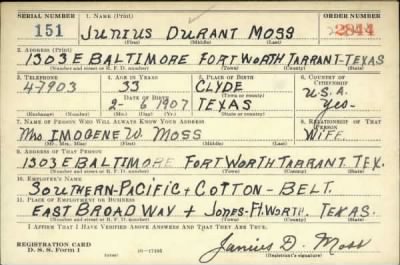 SERIAL NUMBER 1. NAME (Print) ORDER NUMBER
151 JUNIUS DURANT MOSS 2844
(First) (Middle) (Last)
2. ADDRESS (Print)
1303 E BALTIMORE FORT WORTH TARRANT-TEXAS
(Number and street or R. F. D. number) (Town) (County) (State)
3. TELEPHONE 4. AGE IN YEARS 5. PLACE OF BIRTH 6. COUNTRY OF CITIZENSHIP
4-7903 33 CLYDE U.S.A.
DATE OF BIRTH (Town or county)
2-6 1907 TEXAS Yes-
(Exchange) (Number) (Mo.) (Day) (Yr.) (State or country)
7. NAME OF PERSON WHO WILL ALWAYS KNOW YOUR ADDRESS 8. RELATIONSHIP OF THAT PERSON
Mrs IMOGENE W. MOSS WIFE
(Mr., Mrs., Miss) (First) (Middle) (Last)
9. ADDRESS OF THAT PERSON
1303 E BALTIMORE FORT WORTH TARRANT, TEX.
(Number and street or R. F. D. number) (Town) (County) (State)
10. EMPLOYER'S NAME
SOUTHERN-PACIFIC + COTTON-BELT.
11. PLACE OF EMPLOYMENT OR BUSINESS
EAST BROADWAY + JONES-Ft. WORTH. TEXAS.
(Number and street or R. F. D. number) (Town) (County) (State)
I AFFIRM THAT I HAVE VERIFIED ABOVE ANSWERS AND THAT THEY ARE TRUE.
REGISTRATION CARD
D. S. S. Form 1 16-17105 Junius D. Moss
(Registrant's signature)